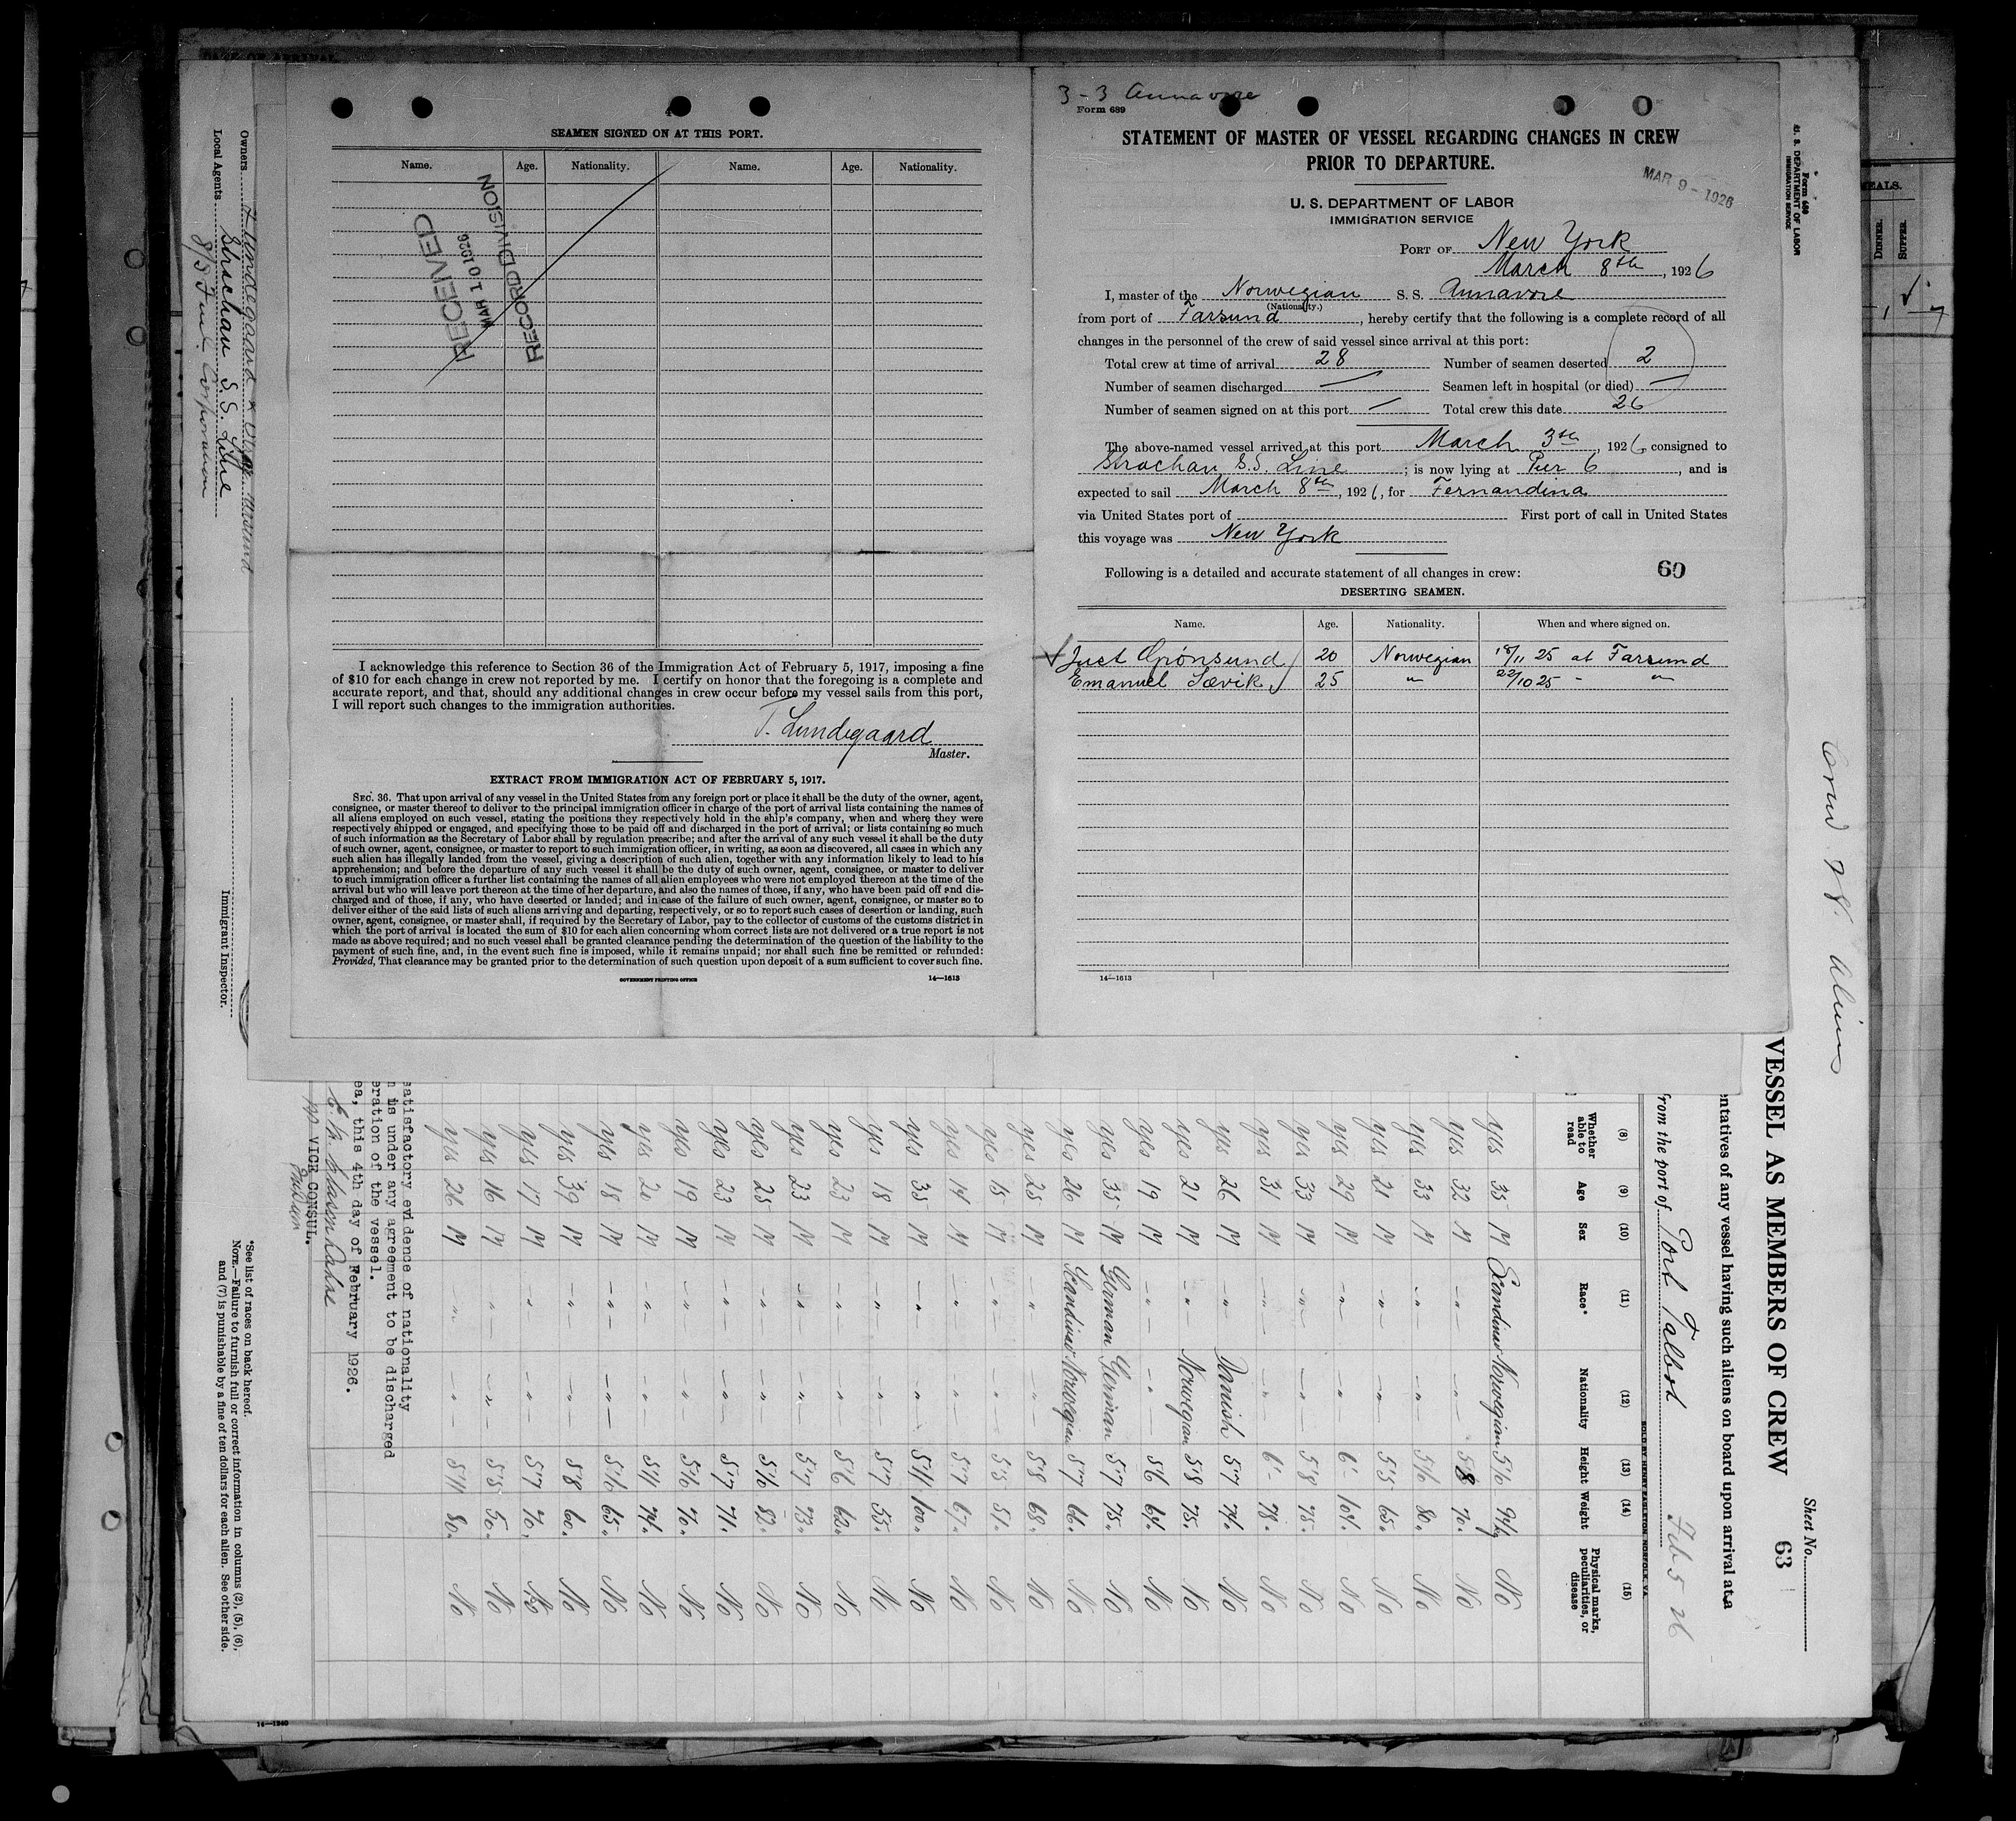 SEAMEN SIGNED ON AT THIS PORT.
Name. Age. Nationality. Name. Age. Nationality.
RECEIVED
MAR 10 1926
RECORD DIVISION
I acknowledge this reference to Section 36 of the Immigration Act of February 5, 1917, imposing a fine
of $10 for each change in crew not reported by me. I certify on honor that the foregoing is a complete and
accurate report, and that, should any additional changes in crew occur before my vessel sails from this port,
I will report such changes to the immigration authorities.
T. Lundegaard
Master.
EXTRACT FROM IMMIGRATION ACT OF FEBRUARY 5, 1917.
SEC. 36. That upon arrival of any vessel in the United States from any foreign port or place it shall be the duty of the owner, agent,
consignee, or master thereof to deliver to the principal immigration officer in charge of the port of arrival lists containing the names of
all aliens employed on such vessel, stating the positions they respectively hold in the ship's company, when and where they were
respectively shipped or engaged, and specifying those to be paid off and discharged in the port of arrival; or lists containing so much
of such information as the Secretary of Labor shall by regulation prescribe; and after the arrival of any such vessel it shall be the duty
of such owner, agent, consignee, or master to report to such immigration officer, in writing, as soon as discovered, all cases in which any
such alien has illegally landed from the vessel, giving a description of such alien, together with any information likely to lead to his
apprehension; and before the departure of any such vessel it shall be the duty of such owner, agent, consignee, or master to deliver
to such immigration officer a further list containing the names of all alien employees who were not employed thereon at the time of the
arrival but who will leave port thereon at the time of her departure, and also the names of those, if any, who have been paid off and dis-
charged and of those, if any, who have deserted or landed; and in case of the failure of such owner, agent, consignee, or master so to
deliver either of the said lists of such aliens arriving and departing, respectively, or so to report such cases of desertion or landing, such
owner, agent, consignee, or master shall, if required by the Secretary of Labor, pay to the collector of customs of the customs district in
which the port of arrival is located the sum of $10 for each alien concerning whom correct lists are not delivered or a true report is not
made as above required; and no such vessel shall be granted clearance pending the determination of the question of the liability to the
payment of such fine, and, in the event such fine is imposed, while it remains unpaid; nor shall such fine be remitted or refunded:
Provided, That clearance may be granted prior to the determination of such question upon deposit of a sum sufficient to cover such fine.
GOVERNMENT PRINTING OFFICE 14—1613
3-3 Annavore
Form 689
STATEMENT OF MASTER OF VESSEL REGARDING CHANGES IN CREW
PRIOR TO DEPARTURE.
MAR 9 - 1926
U. S. DEPARTMENT OF LABOR
IMMIGRATION SERVICE
PORT OF New York
March 8th, 1926
I, master of the Norwegian S. S. Annavore
(Nationality.)
from port of Farsund, hereby certify that the following is a complete record of all
changes in the personnel of the crew of said vessel since arrival at this port:
Total crew at time of arrival 28 Number of seamen deserted 2
Number of seamen discharged — Seamen left in hospital (or died) —
Number of seamen signed on at this port — Total crew this date 26
The above-named vessel arrived at this port March 3th, 1926, consigned to
Strachan S.S. Line; is now lying at Pier 6, and is
expected to sail March 8th, 1926, for Fernandina
via United States port of First port of call in United States
this voyage was New York
Following is a detailed and accurate statement of all changes in crew: 60
DESERTING SEAMEN.
Name. Age. Nationality. When and where signed on.
Just Grönsund 20 Norwegian 18/11 25 at Farsund
Emanuel Sævik 25 " 22/10 25 " "
14—1613
Form 689
U. S. DEPARTMENT OF LABOR
IMMIGRATION SERVICE
MEALS.
DINNER.
SUPPER.
Owners
Local Agents Strachan S. S. Line
Immigrant Inspector.
Sheet No.
VESSEL AS MEMBERS OF CREW 63
entatives of any vessel having such aliens on board upon arrival at a
from the port of Port Talbot Feb 5 26
SOLD BY HENRY EAGLETON, NORFOLK, VA.
(8) (9) (10) (11) (12) (13) (14) (15)
Whether able to read Age Sex Race* Nationality Height Weight Physical marks, peculiarities, or disease
yes 35 M Scandinav Norwegian 5'6 94 kg No
yes 32 M " " 5'8 70 " No
yes 33 M " " 5'6 80 " No
yes 21 M " " 5'5 65 " No
yes 29 M " " 6'- 101 " No
yes 33 M " " 5'8 75 " No
yes 31 M " " 6'- 78 " No
yes 26 M " Danish 5'7 74 " No
yes 21 M " Norwegian 5'8 75 " No
yes 19 M " " 5'6 64 " No
yes 35 M German German 5'7 75 " No
yes 26 M Scandinav Norwegian 5'7 66 " No
yes 25 M " " 5'8 68 " No
yes 15 M " " 5'5 51 " No
yes 17 M " " 5'7 67 " No
yes 35 M " " 5'11 100 " No
yes 18 M " " 5'7 55 " No
yes 23 M " " 5'6 62 " No
yes 23 M " " 5'7 73 " No
yes 25 M " " 5'6 82 " No
yes 23 M " " 5'7 71 " No
yes 19 M " " 5'6 70 " No
yes 20 M " " 5'11 74 " No
yes 18 M " " 5'6 65 " No
yes 39 M " " 5'8 60 " No
yes 17 M " " 5'7 70 " No
yes 16 M " " 5'5 50 " No
yes 26 M " " 5'11 80 " No
satisfactory evidence of nationality
n is under any agreement to be discharged
eration of the vessel.
ea, this 4th day of February 1926.
VICE CONSUL.
*See list of races on back hereof.
NOTE.—Failure to furnish full or correct information in columns (2), (5), (6),
and (7) is punishable by a fine of ten dollars for each alien. See other side.
14—1240